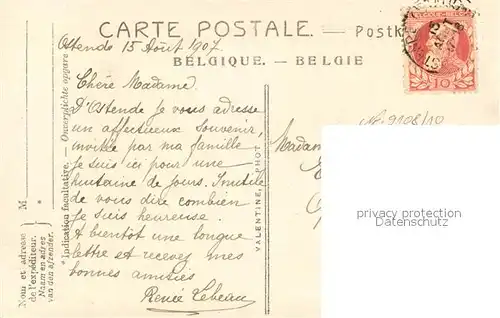 CARTE POSTALE. — Postk
BELGIQUE. — BELGIE
BELGIQUE-BELGIË
10
Ostende 15 Août 1907
Chère Madame.
D'Ostende je vous adresse
un affectueux souvenir,
invitée par ma famille
je suis ici pour une
huitaine de jours. Inutile
de vous dire combien
je suis heureuse.
A bientôt une longue
lettre et recevez mes
bonnes amitiés
Renée Lebeau
Madam
Nr. 9108/10
privacy protection
Datenschutz
VALENTINE, PHOT
M.
Nom et adresse
de l'expéditeur.
Naam en adres
van den afzender.
*Indication facultative. — Onverplichte opgave